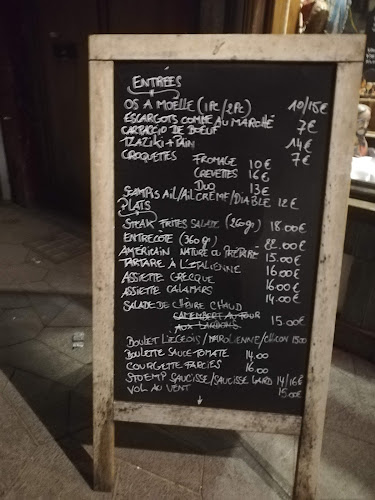 ENTRÉES
OS A MOELLE (1PC/2PC) 10/15€
ESCARGOTS COMME AU MARCHÉ 7€
CARPACCIO DE BOEUF 14€
TZAZIKI + PAIN 7€
CROQUETTES FROMAGE 10€
CREVETTES 16€
DUO 13€
SCAMPIS AIL/AIL CRÈME/DIABLE 12€
PLATS
STEAK FRITES SALADE (260gr) 18.00€
ENTRECOTE (360gr) 22.00€
AMÉRICAIN NATURE OU PRÉPARÉ 15.00€
TARTARE À L'ITALIENNE 16.00€
ASSIETTE GRECQUE 16.00€
ASSIETTE CALAMARS 14.00€
SALADE DE CHÈVRE CHAUD
CAMEMBERT AU FOUR 15.00€
AUX LARDONS
BOULET LIÉGEOIS/MAROLIENNE/CHICON 15.00
BOULETTE SAUCE TOMATE 14.00
COURGETTE FARCIES 16.00
STOEMP SAUCISSE/SAUCISSE LARD 14/16€
VOL AU VENT 15.00€